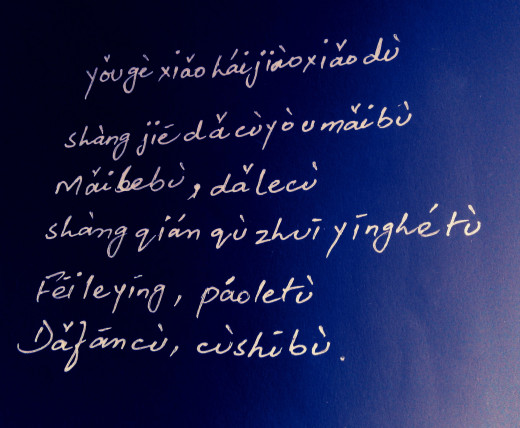 yǒu gè xiǎo hái jiào xiǎo dù
shàng jiē dǎ cù yòu mǎi bù
Mǎi le bù, dǎ le cù
shàng qián qù zhuī yīng hé tù
Fēi le yīng, páo le tù
Dǎ fān cù, cù shī bù.